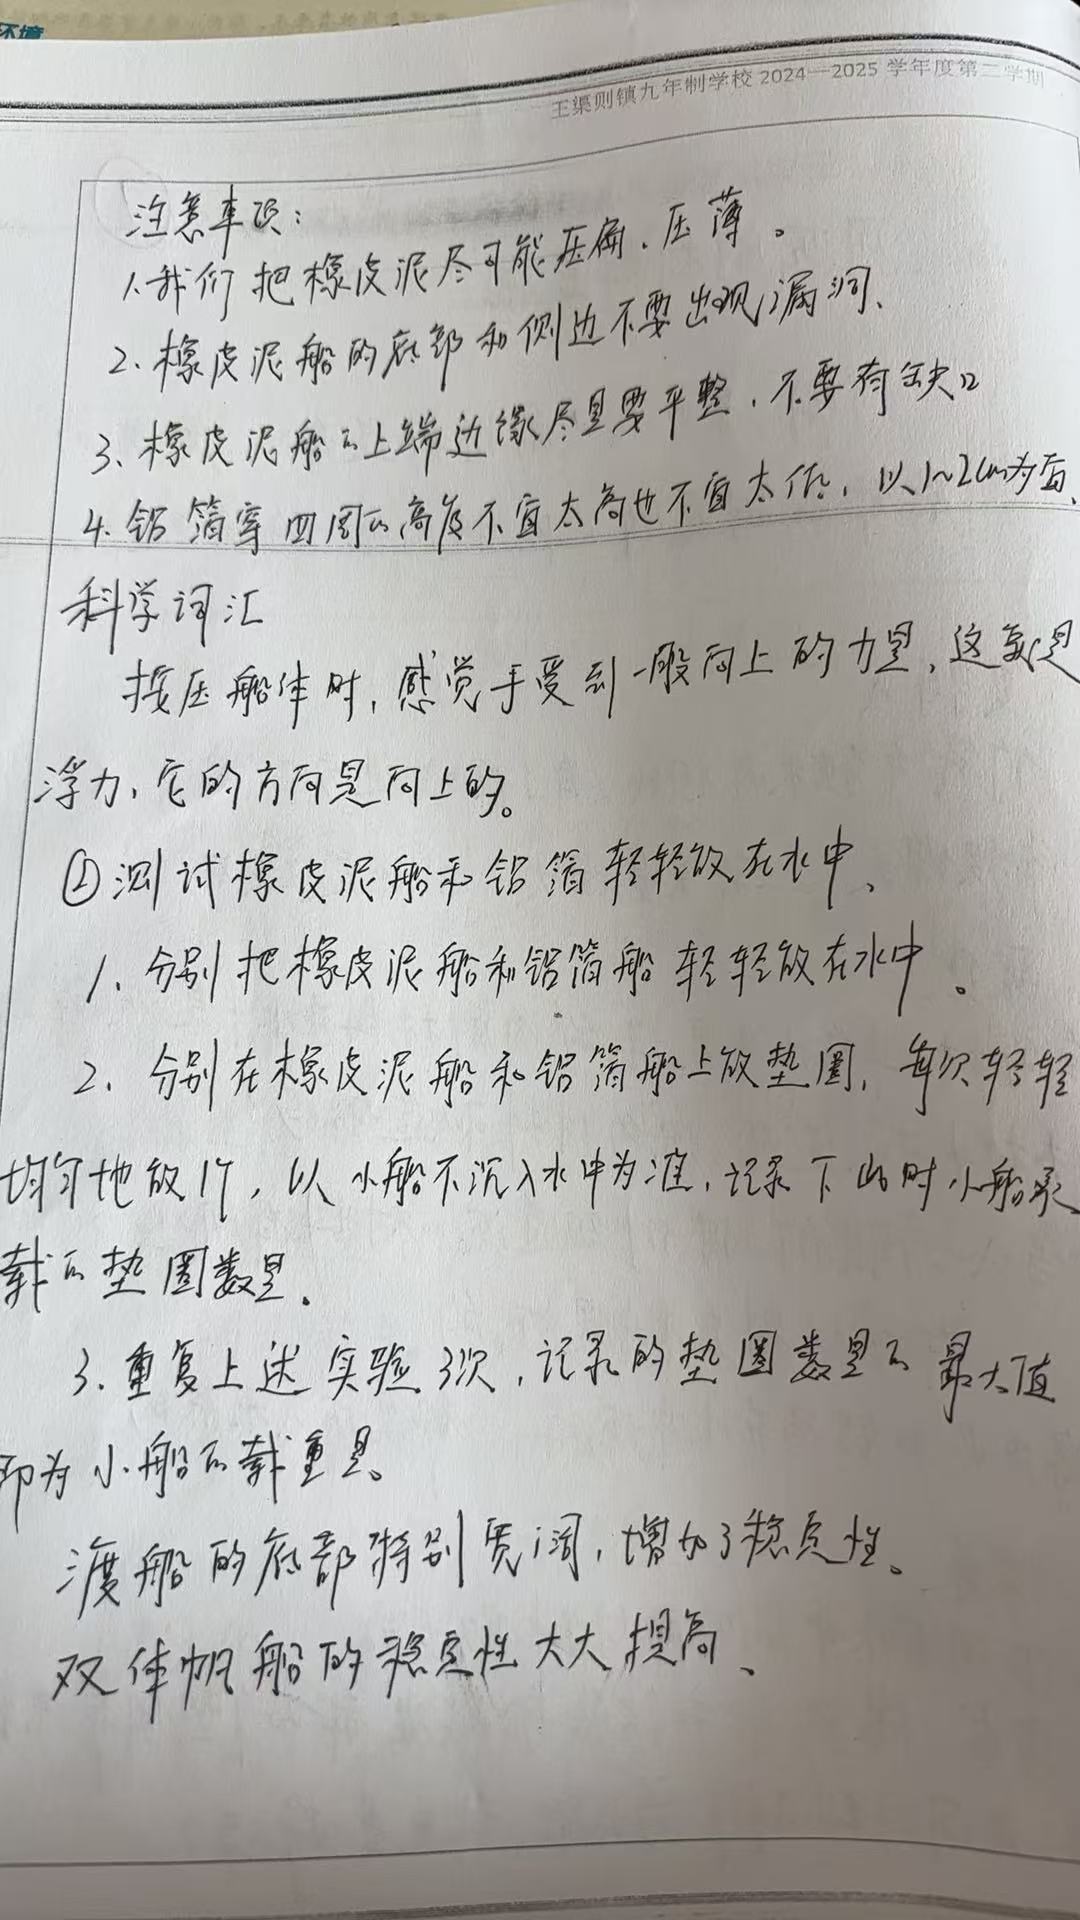 环境
王渠则镇九年制学校 2024—2025 学年度第二学期
注意事项:
1.我们把橡皮泥尽可能压扁、压薄。
2、橡皮泥船的底部和侧边不要出现漏洞、
3、橡皮泥船的上端边缘尽量要平整,不要有缺口
4.铝箔穿四周的高度不宜太高也不宜太低,以1~2cm为宜、
科学词汇
按压船体时,感觉手受到一股向上的力量,这就是
浮力,它的方向是向上的。
②测试橡皮泥船和铝箔轻轻放在水中、
1、分别把橡皮泥船和铝箔船轻轻放在水中。
2、分别在橡皮泥船和铝箔船上放垫圈,每次轻轻
均匀地放1个,以小船不沉入水中为准,记录下此时小船承
载的垫圈数量。
3.重复上述实验3次,记录的垫圈数量的最大值
即为小船的载重量。
渡船的底部特别宽阔,增加了稳定性。
双体帆船的稳定性大大提高、